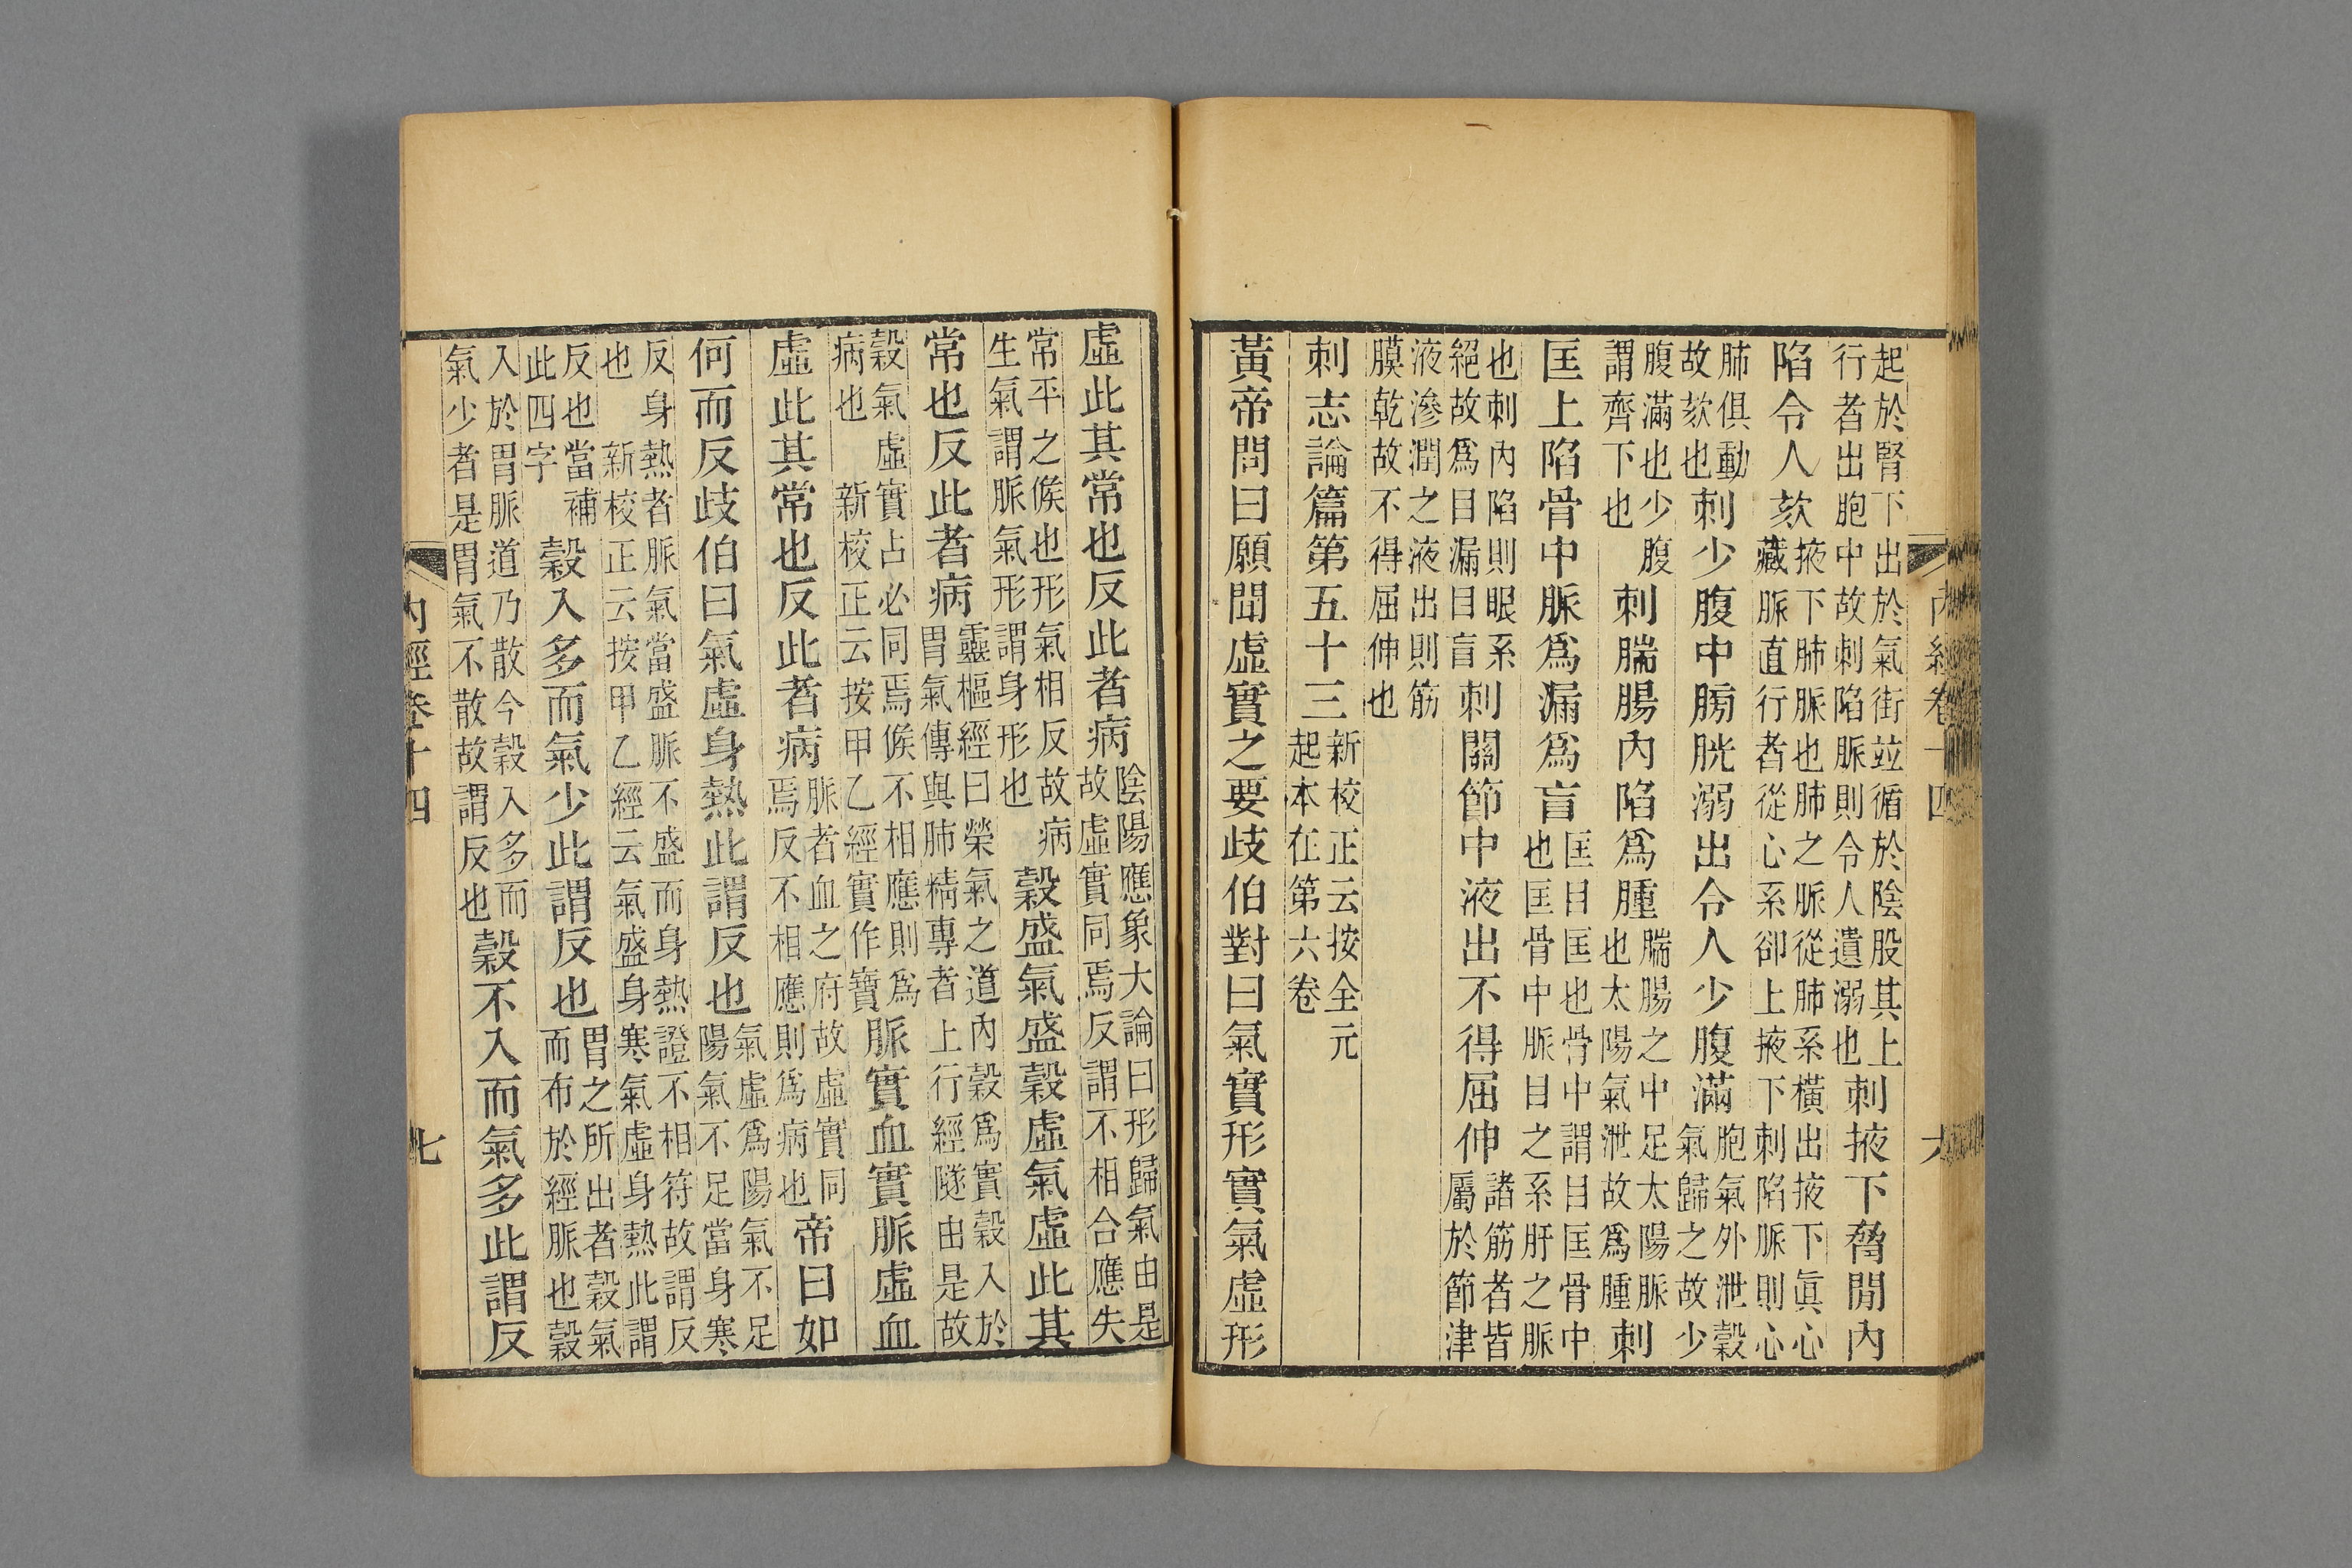 內經卷十四 六
起於腎下出於氣街竝循於陰股其上
行者出胞中故刺陷脈則令人遺溺也
刺掖下脅閒內
陷令人欬
掖下肺脈也肺之脈從肺系橫出掖下眞心
藏脈直行者從心系卻上掖下刺陷脈則心
肺俱動
故欬也
刺少腹中膀胱溺出令人少腹滿
胞氣外泄穀
氣歸之故少
腹滿也少腹
謂齊下也
刺腨腸內陷爲腫
腨腸之中足太陽脈
也太陽氣泄故爲腫
刺
匡上陷骨中脈爲漏爲盲
匡目匡也骨中謂目匡骨中
也匡骨中脈目之系肝之脈
也刺內陷則眼系
絕故爲目漏目盲
刺關節中液出不得屈伸
諸筋者皆
屬於節津
液滲潤之液出則筋
膜乾故不得屈伸也
刺志論篇第五十三
新校正云按全元
起本在第六卷
黃帝問曰願聞虛實之要歧伯對曰氣實形實氣虛形
虛此其常也反此者病
陰陽應象大論曰形歸氣由是
故虛實同焉反謂不相合應失
常平之候也形氣相反故病
生氣謂脈氣形謂身形也
穀盛氣盛穀虛氣虛此其
常也反此者病
靈樞經曰榮氣之道內穀爲實穀入於
胃氣傳與肺精專者上行經隧由是故
穀氣虛實占必同焉候不相應則爲
病也 新校正云按甲乙經實作寶
脈實血實脈虛血
虛此其常也反此者病
脈者血之府故虛實同
焉反不相應則爲病也
帝曰如
何而反歧伯曰氣虛身熱此謂反也
氣虛爲陽氣不足
陽氣不足當身寒
反身熱者脈氣當盛脈不盛而身熱證不相符故謂反
也 新校正云按甲乙經云氣盛身寒氣虛身熱此謂
反也當補
此四字
穀入多而氣少此謂反也
胃之所出者穀氣
而布於經脈也穀
入於胃脈道乃散今穀入多而
氣少者是胃氣不散故謂反也
穀不入而氣多此謂反
內經卷十四 七